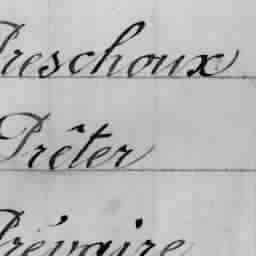 Preschoux
Prêter
Prévaire